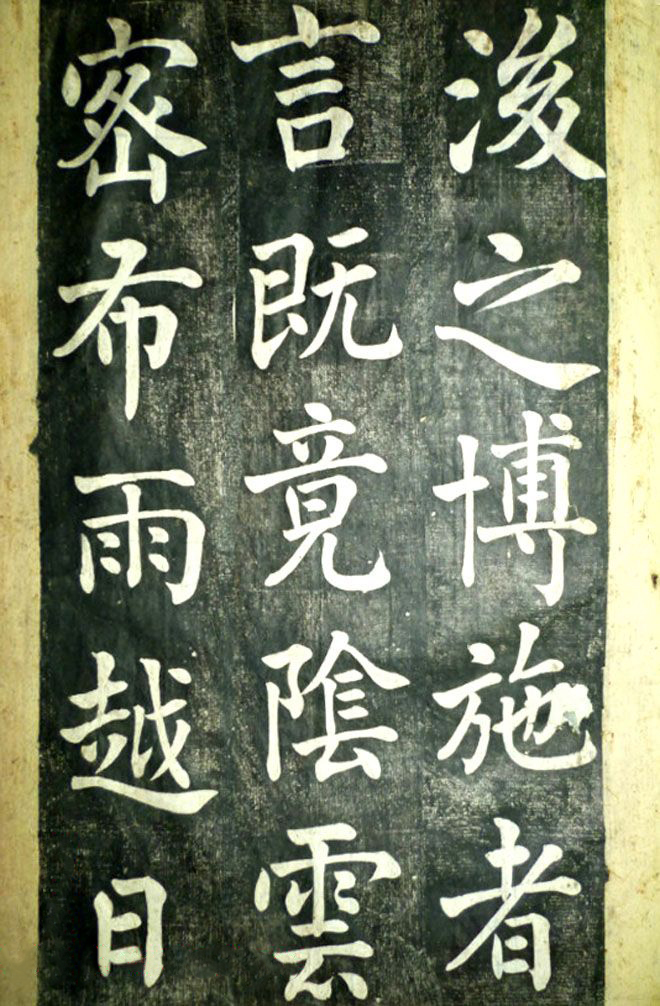 後之博施者
言既竟陰雲
密布雨越日